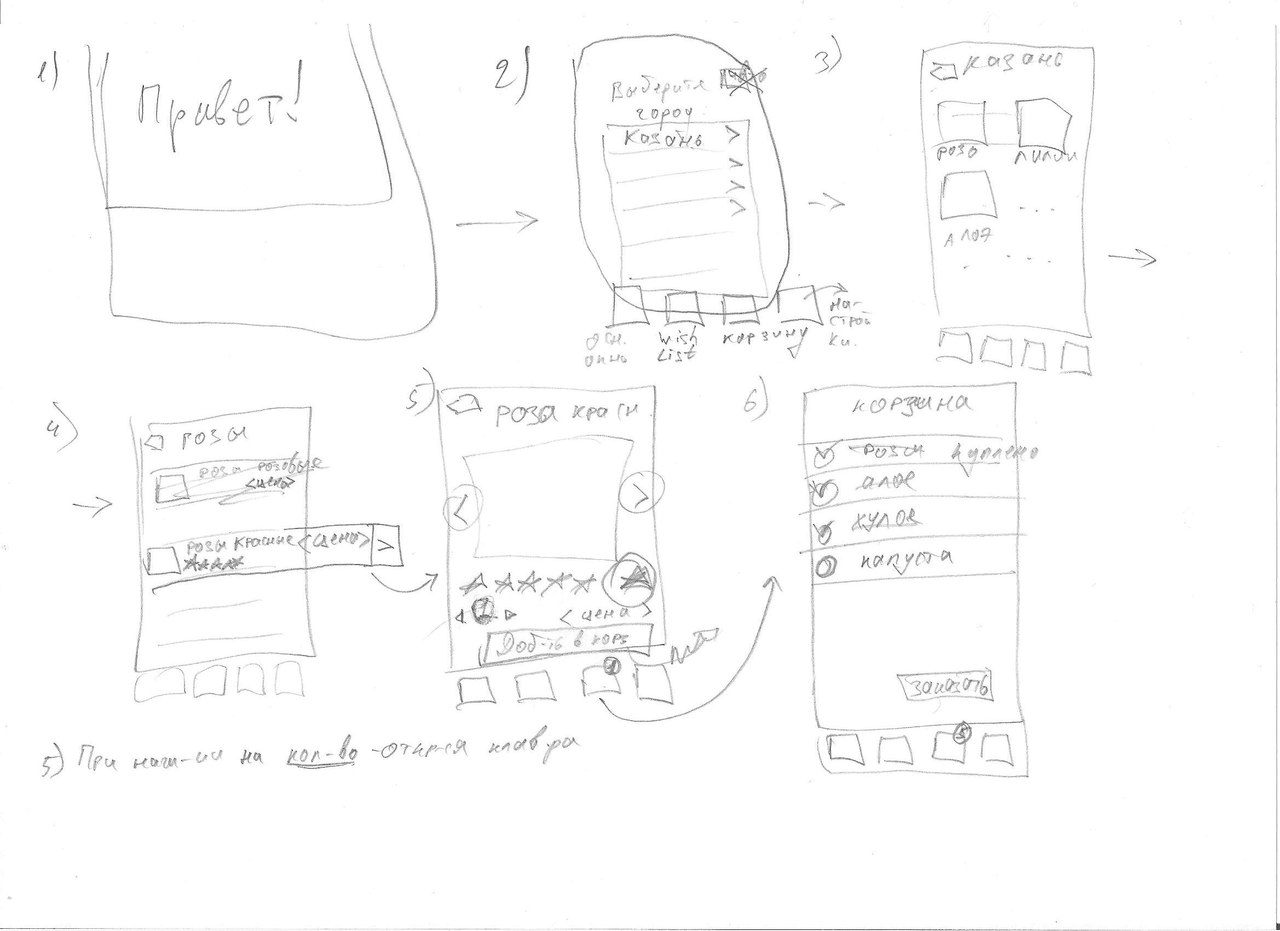 1)
Привет!
2)
Выберите
город
Казань
осн.
окно
Wish
List
корзину
на-
строй
ки.
3)
Казань
розы
лилии
алоэ
4)
розы
розы розовые
<цена>
розы красные <цена>
5)
роза красн
1
<цена>
Доб-ть в корз
1
6)
корзина
розы куплено
алоэ
капуста
заказать
5
5) При наж-ии на кол-во -откр-ся клав-ра